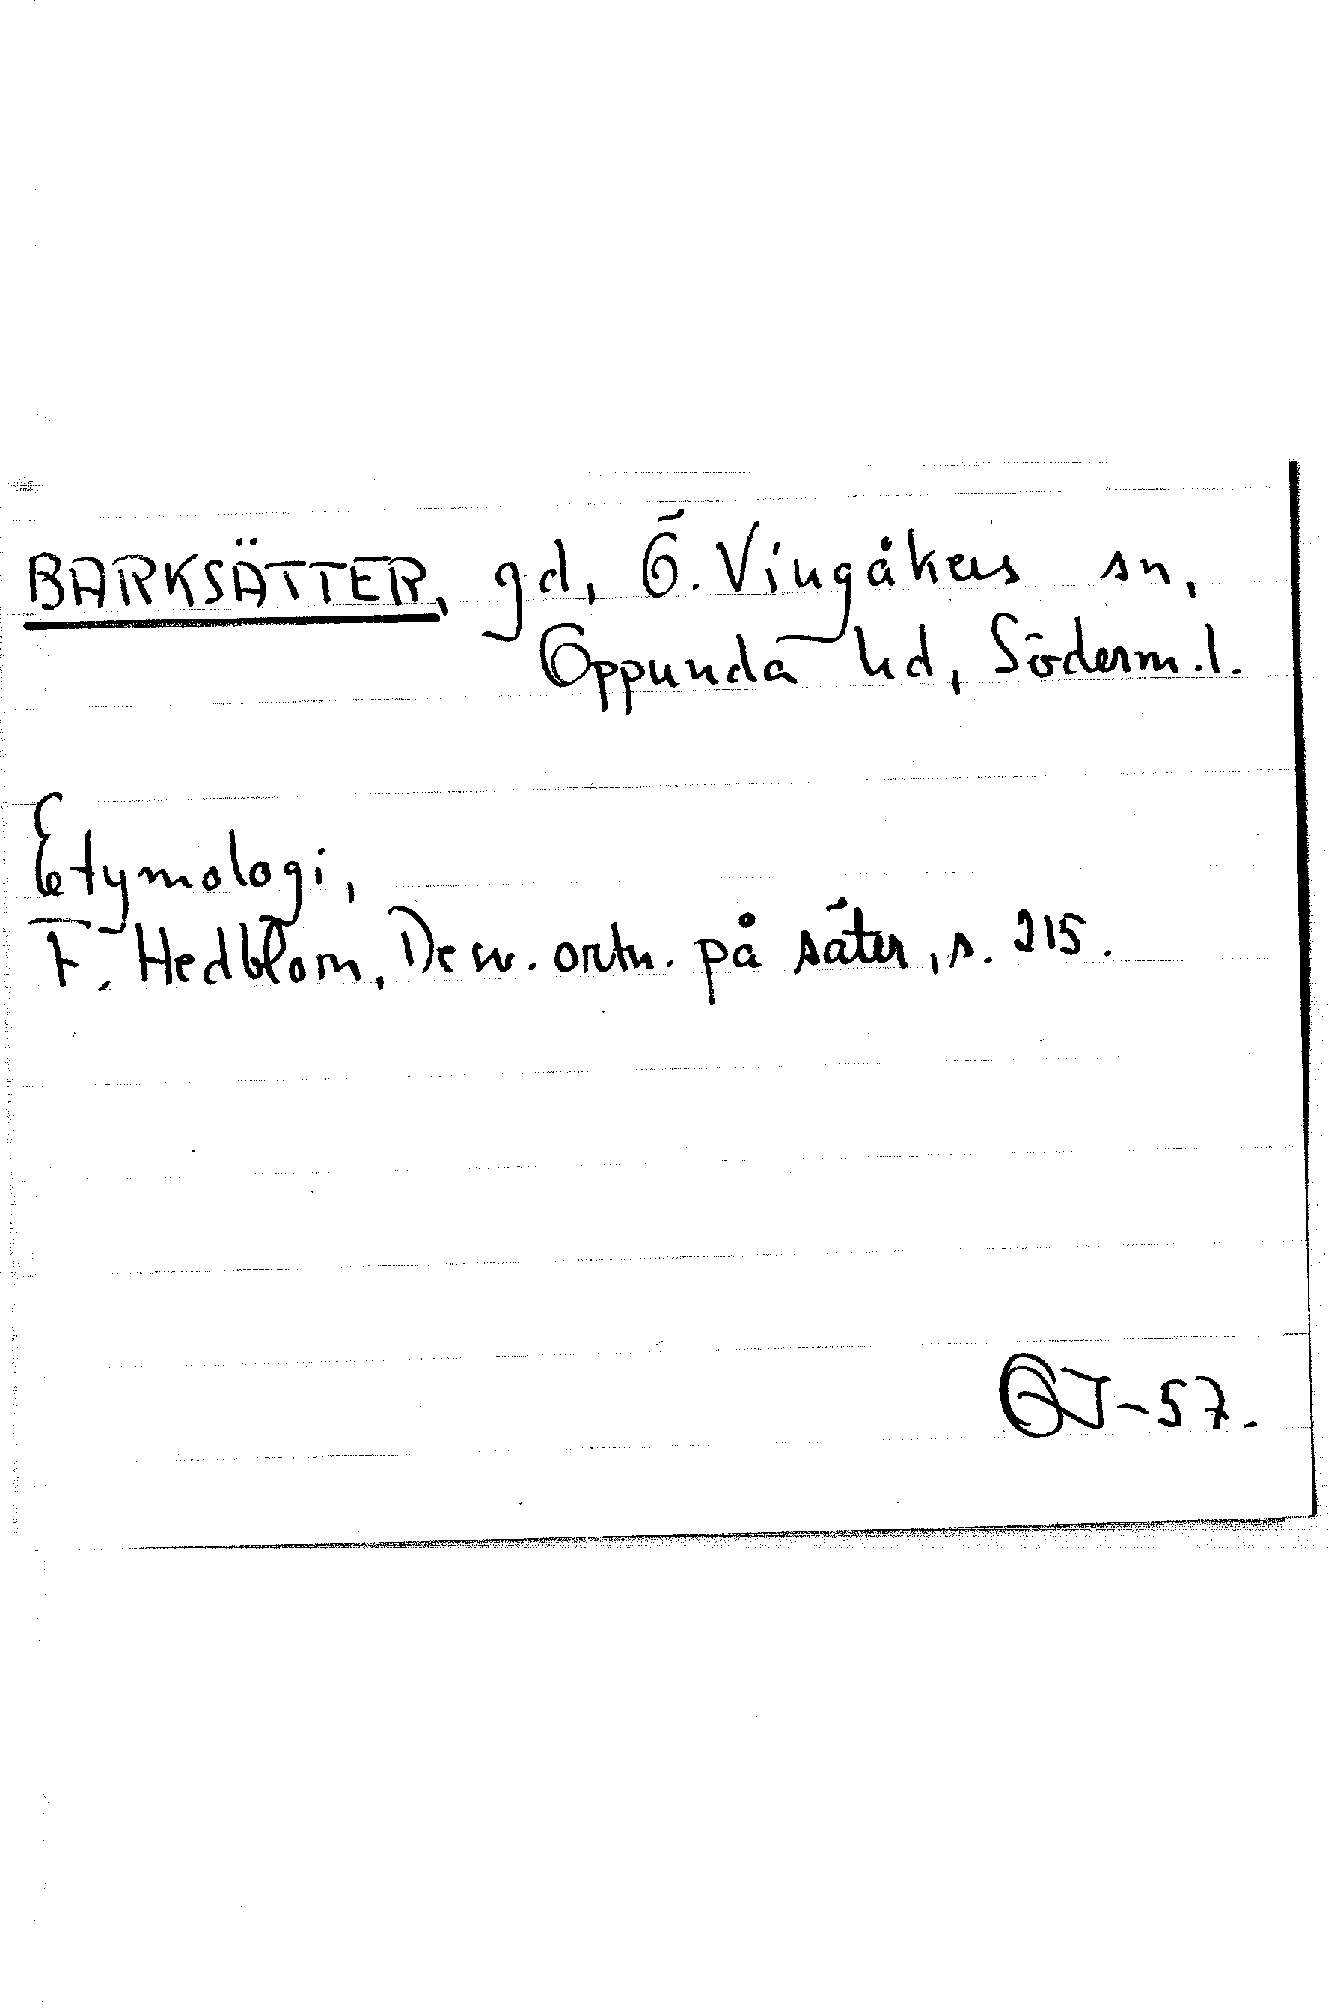 BARKSÄTTER, gd, Ö. Vingåkers sn,
Oppunda hd, Söderm.l.
Etymologi,
F. Hedblom, De sv. ortn. på säter, s. 215.
OJ-57.